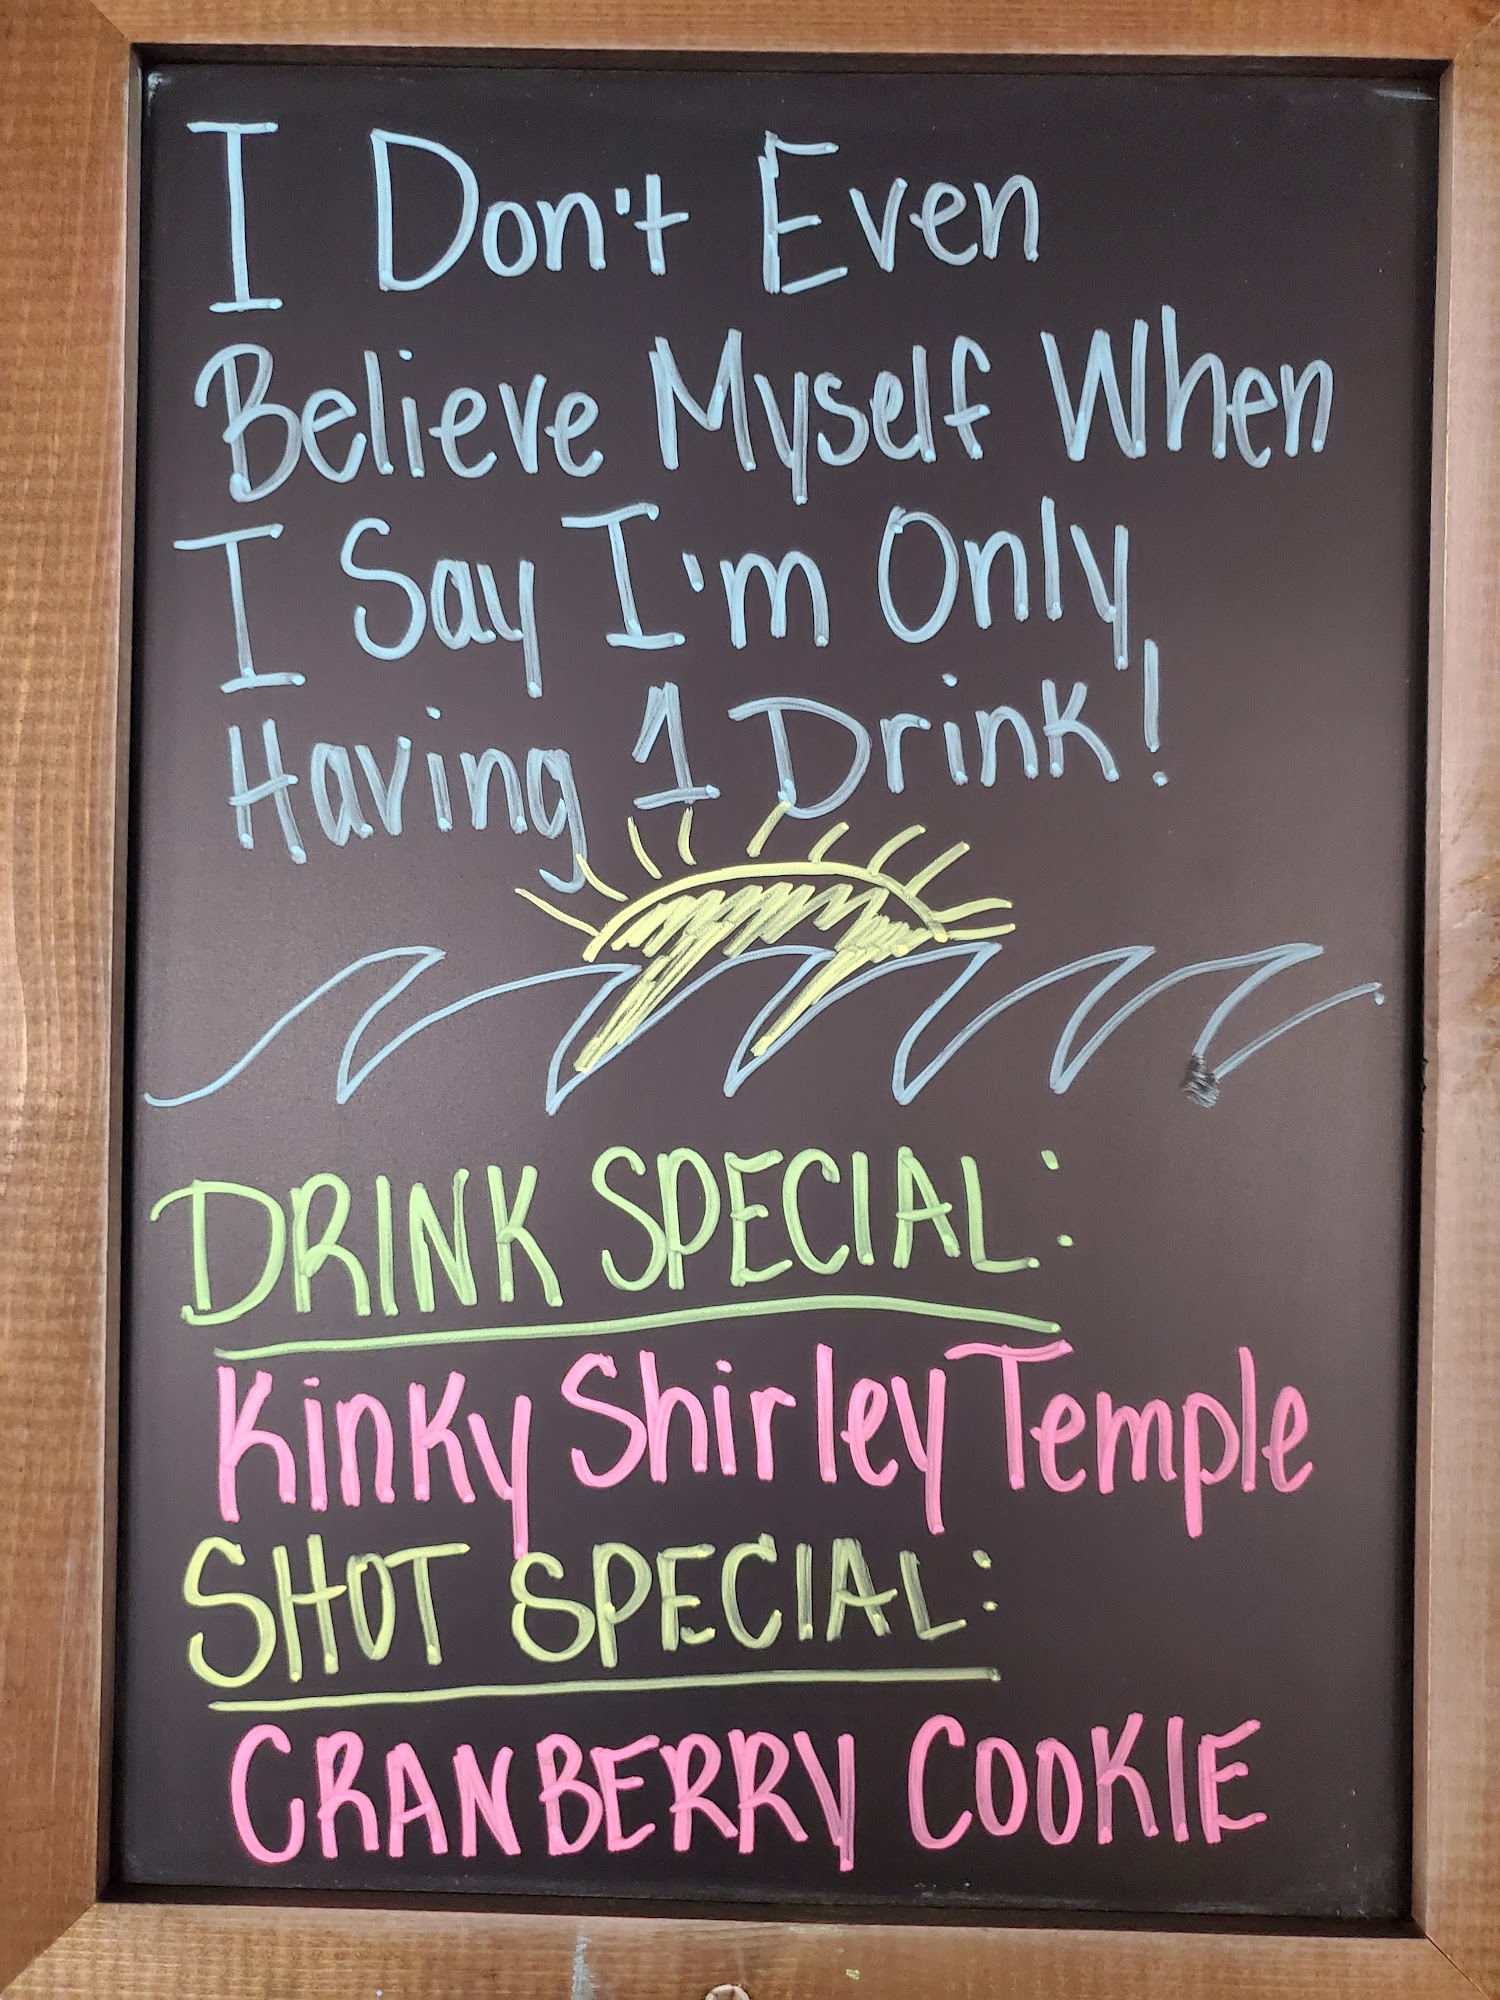 I Don't Even
Believe Myself When
I Say I'm Only
Having 1 Drink!
DRINK SPECIAL:
Kinky Shirley Temple
SHOT SPECIAL:
CRANBERRY COOKIE